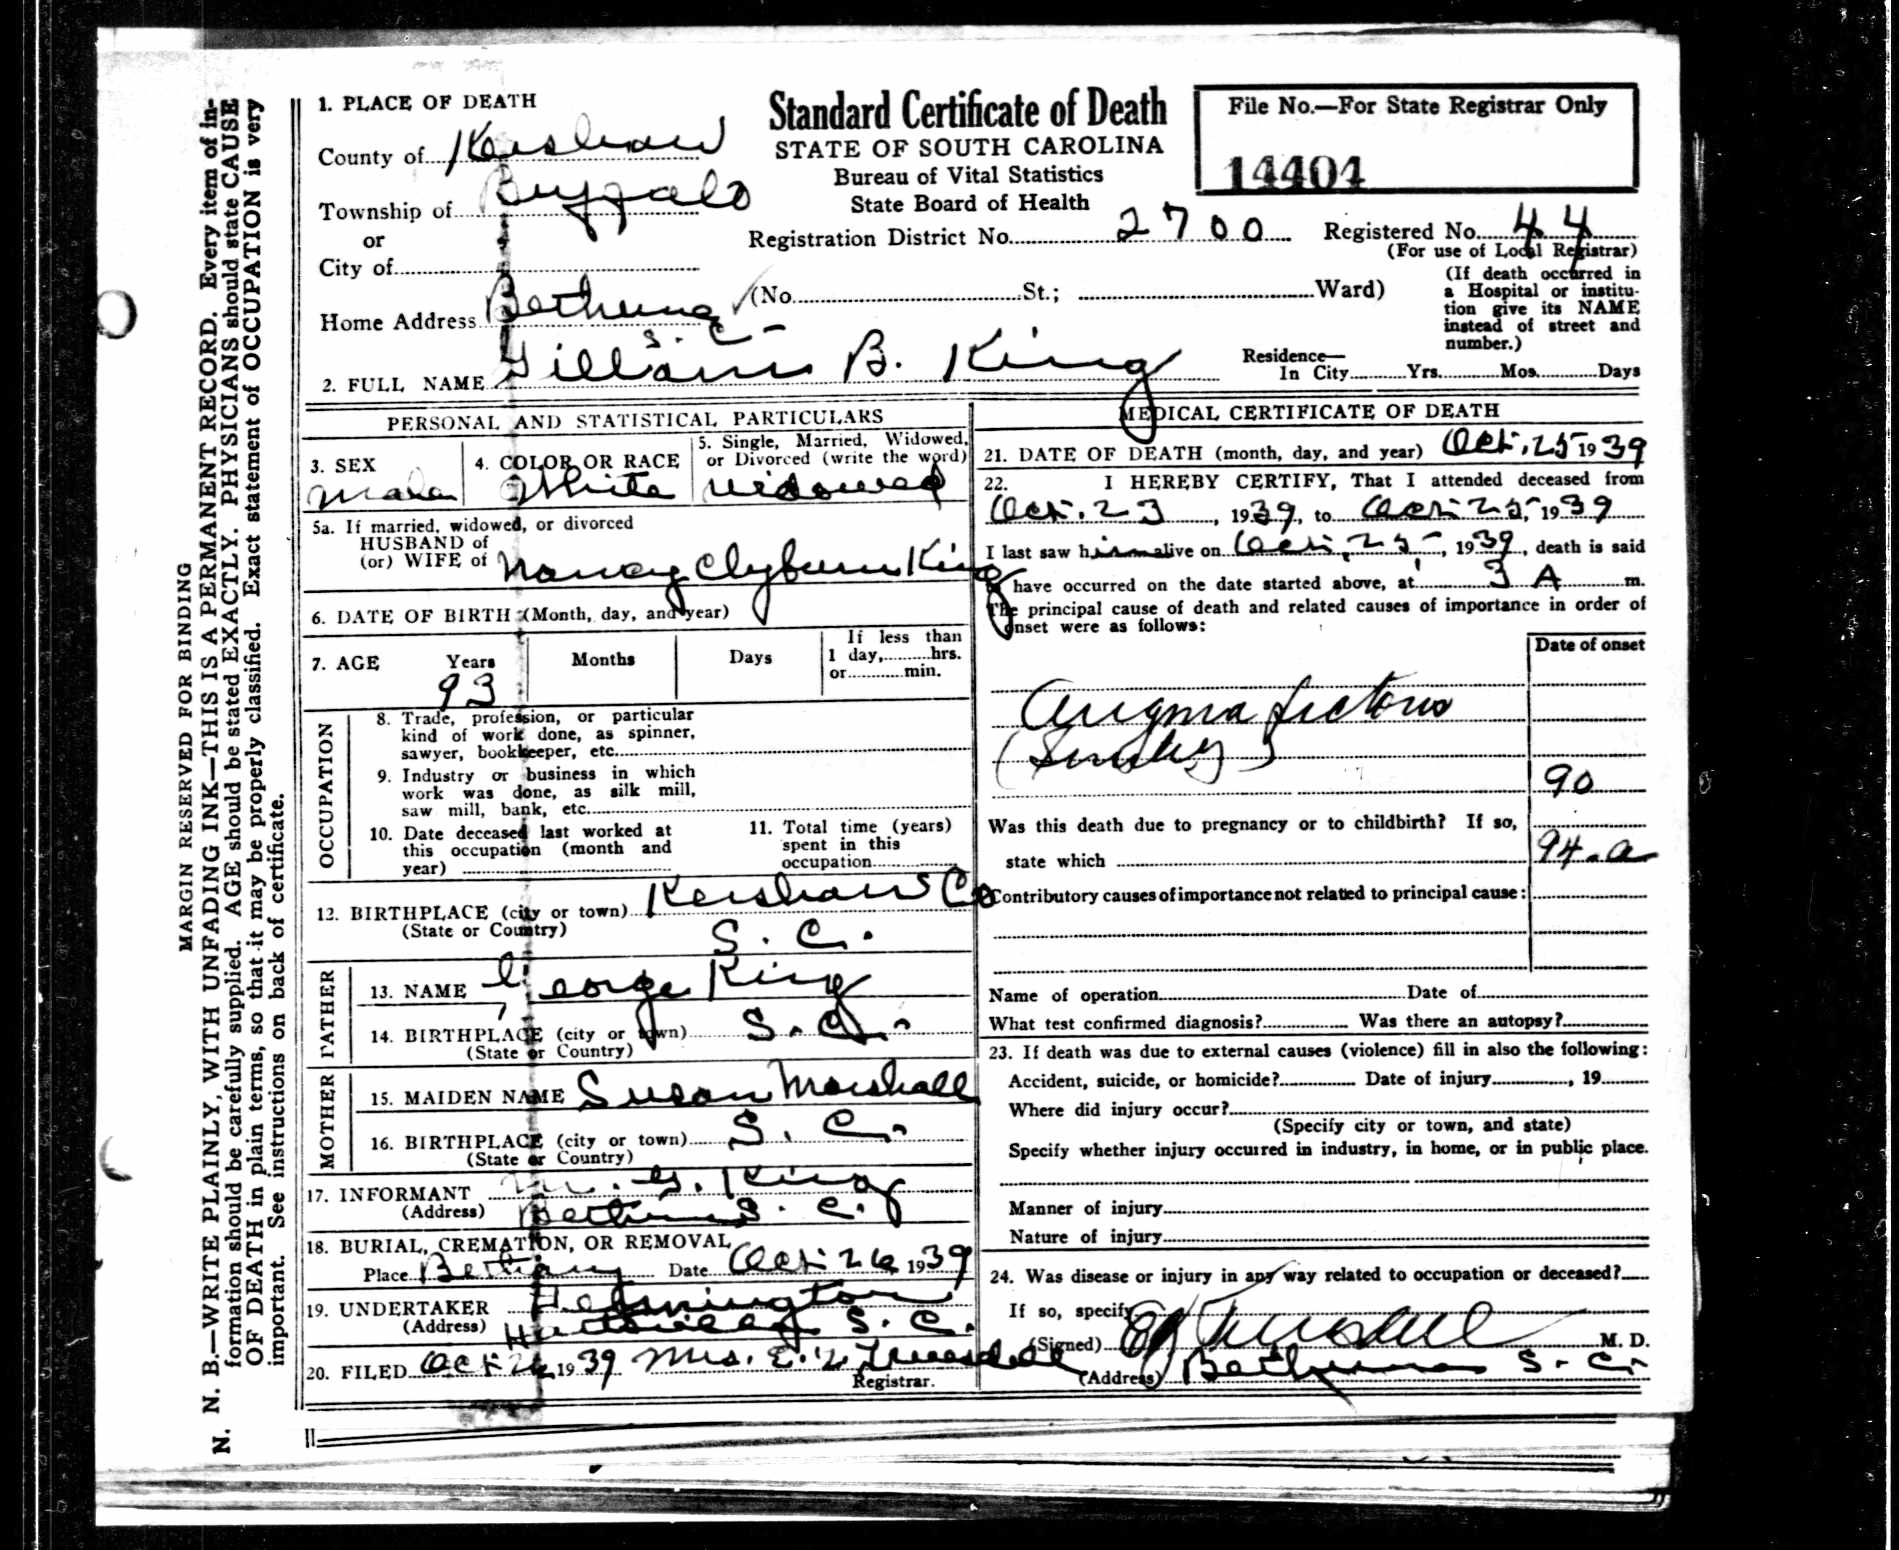 MARGIN RESERVED FOR BINDING
N. B.—WRITE PLAINLY, WITH UNFADING INK—THIS IS A PERMANENT RECORD. Every item of in-
formation should be carefully supplied. AGE should be stated EXACTLY. PHYSICIANS should state CAUSE
OF DEATH in plain terms, so that it may be properly classified. Exact statement of OCCUPATION is very
important. See instructions on back of certificate.
N.
1. PLACE OF DEATH
County of Kershaw
Township of Buffalo
or
City of
Home Address Bethune
S. C.
Standard Certificate of Death
STATE OF SOUTH CAROLINA
Bureau of Vital Statistics
State Board of Health
File No.—For State Registrar Only
14404
Registration District No. 2700
Registered No. 44
(For use of Local Registrar)
(No. St.; Ward)
(If death occurred in
a Hospital or institu-
tion give its NAME
instead of street and
number.)
2. FULL NAME Gillam B. King
Residence—
In City Yrs. Mos. Days
PERSONAL AND STATISTICAL PARTICULARS
3. SEX
Male
4. COLOR OR RACE
White
5. Single, Married, Widowed,
or Divorced (write the word)
Widowed
5a. If married, widowed, or divorced
HUSBAND of
(or) WIFE of Nancy Clyburn King
6. DATE OF BIRTH (Month, day, and year)
7. AGE Years Months Days
93
If less than
1 day, hrs.
or min.
OCCUPATION
8. Trade, profession, or particular
kind of work done, as spinner,
sawyer, bookkeeper, etc.
9. Industry or business in which
work was done, as silk mill,
saw mill, bank, etc.
10. Date deceased last worked at
this occupation (month and
year)
11. Total time (years)
spent in this
occupation
12. BIRTHPLACE (city or town) Kershaw Co
(State or Country) S. C.
FATHER
13. NAME George King
14. BIRTHPLACE (city or town) S. C.
(State or Country)
MOTHER
15. MAIDEN NAME Susan Marshall
16. BIRTHPLACE (city or town) S. C.
(State or Country)
17. INFORMANT G. King
(Address) Bethune S. C.
18. BURIAL, CREMATION, OR REMOVAL
Place Bethany Date Oct. 26 1939
19. UNDERTAKER
(Address) Hartsville S. C.
20. FILED Oct 26 1939 Mrs. E. Z. Truesdell
Registrar.
MEDICAL CERTIFICATE OF DEATH
21. DATE OF DEATH (month, day, and year) Oct. 25 1939
22. I HEREBY CERTIFY, That I attended deceased from
Oct. 23, 1939, to Oct. 25, 1939
I last saw him alive on Oct. 25, 1939, death is said
have occurred on the date started above, at 3 A m.
The principal cause of death and related causes of importance in order of
onset were as follows:
Date of onset
90
Was this death due to pregnancy or to childbirth? If so,
state which
94-a
Contributory causes of importance not related to principal cause:
Name of operation Date of
What test confirmed diagnosis? Was there an autopsy?
23. If death was due to external causes (violence) fill in also the following:
Accident, suicide, or homicide? Date of injury , 19
Where did injury occur?
(Specify city or town, and state)
Specify whether injury occurred in industry, in home, or in public place.
Manner of injury
Nature of injury
24. Was disease or injury in any way related to occupation or deceased?
If so, specify
(Signed) Truesdell M. D.
(Address) Bethune S. C.